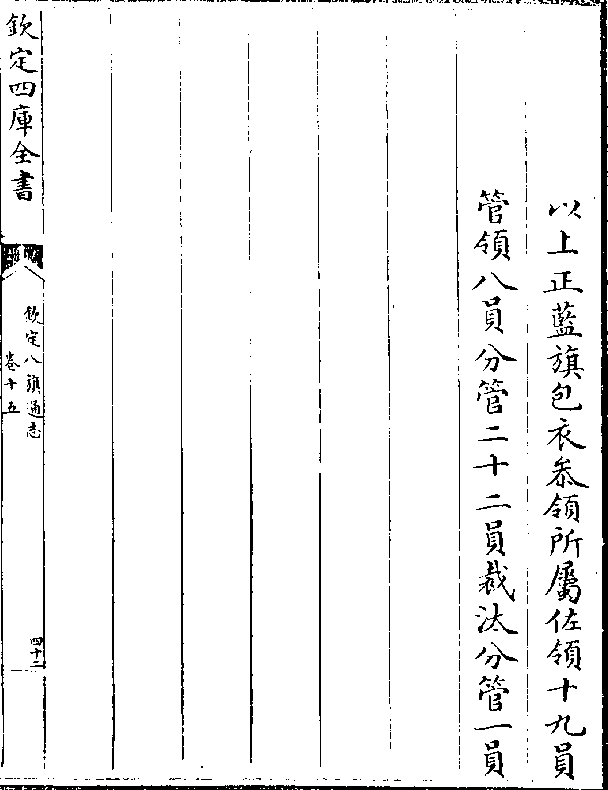 以上正藍旗包衣叅領所屬佐領十九員
管領八員分管二十二員裁汰分管一員
欽定四庫全書
欽定八旗通志
卷十五
四十二